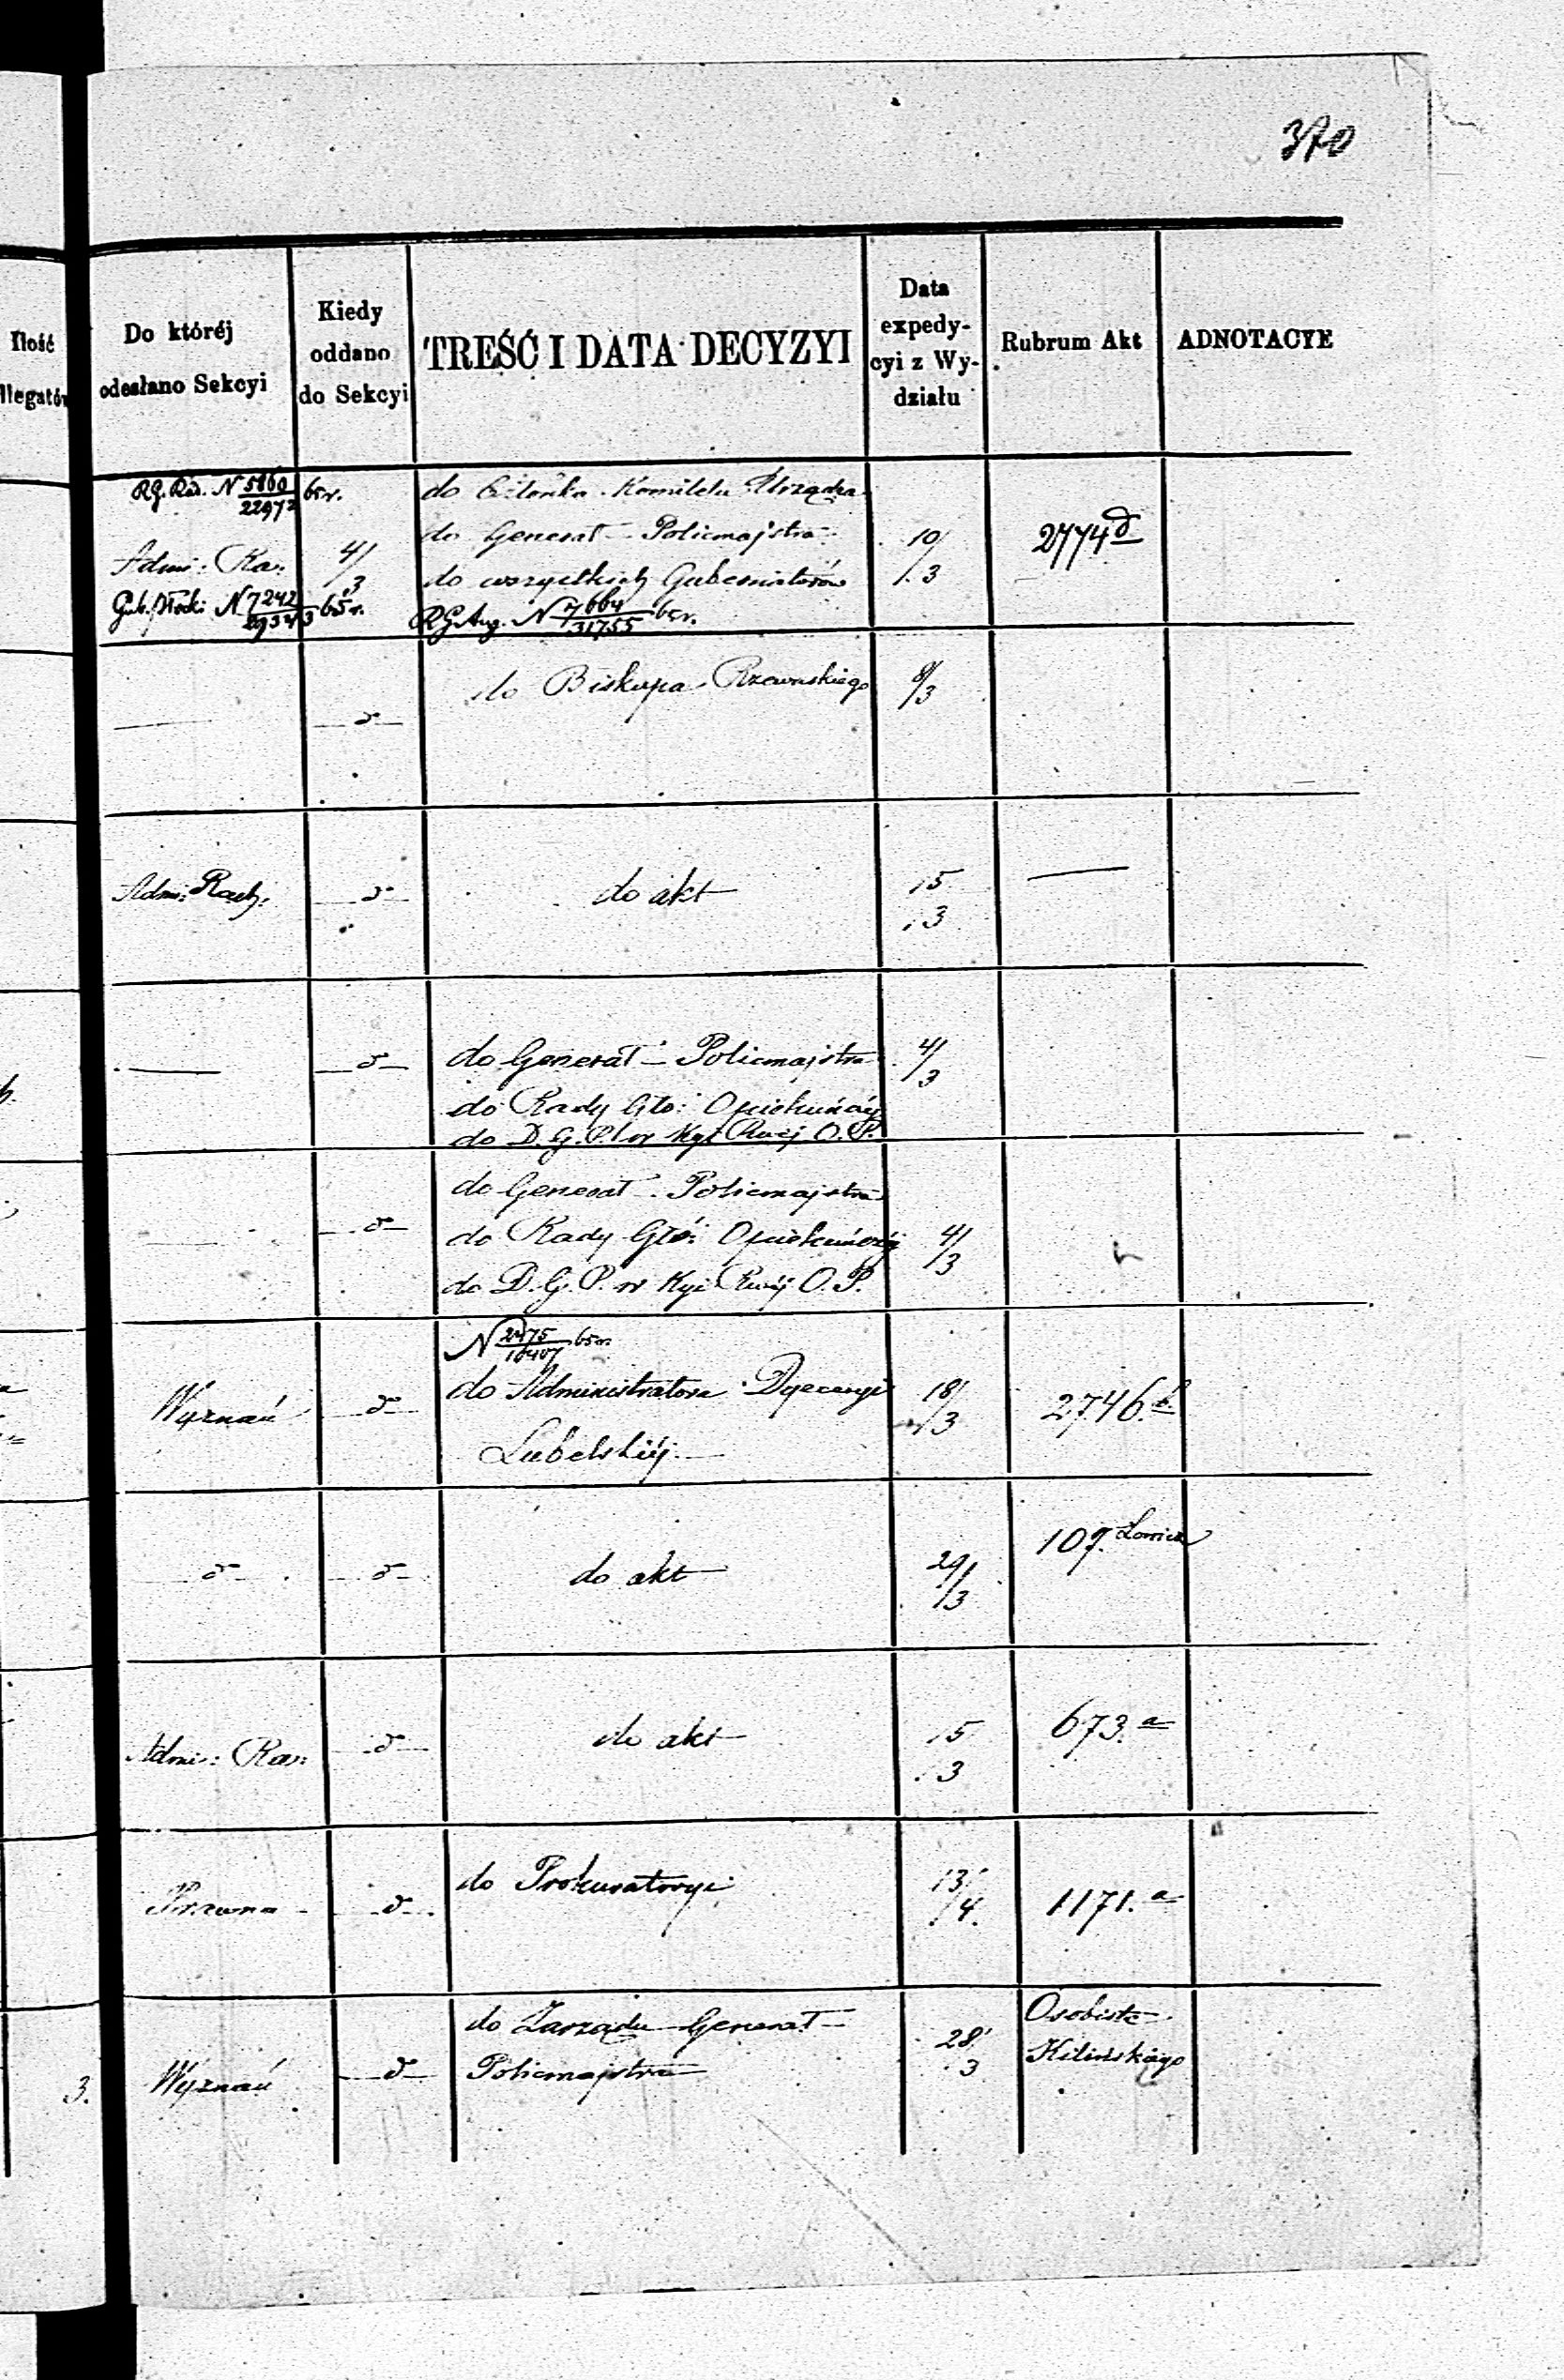 370
Ilość
llegatów
Do któréj
odesłano Sekcyi
Kiedy
oddano
do Sekcyi
TREŚĆ I DATA DECYZYI
Data
expedy-
cyi z Wy-
działu
Rubrum Akt
ADNOTACYE
RG. Rad. N 5860/22972 65r.
Admi: Ra:
Gub. Płocki N 7242/29343 65r.
4/3
do Członka Komitetu Urządza.
do Generał-Policmajstra
do wszystkich Gubernatorów
RG Aug. N 7664/31755 65r.
10/3
2774 d
— d —
do Biskupa Rzewuskiego
8/3
Adm: Rach:
— d —
do akt
15
3
— d —
do Generał-Policmajstra
do Rady Głó: Opiekuńczéj
do D. G. P. w Kyi Rząj O. P.
4/3
— d —
do Generał-Policmajstra
do Rady Głó: Opiekuńczéj
do D. G. P. w Kyi Rząj O. P.
4/3
Wyznań
— d —
N 2475/10407 65r.
do Administratora Dyecezyi
Lubelskiéj
18/3
2746. b
— d —
— d —
do akt
29/3
107. Łowicz
Admi: Ra:
— d —
do akt
15
3
673. a
Prawna
— d —
do Prokuratoryi
13/4
1171. a
3.
Wyznań
— d —
do Zarządu Generał-
Policmajstra
28
3
Osobiste
Kilińskiego